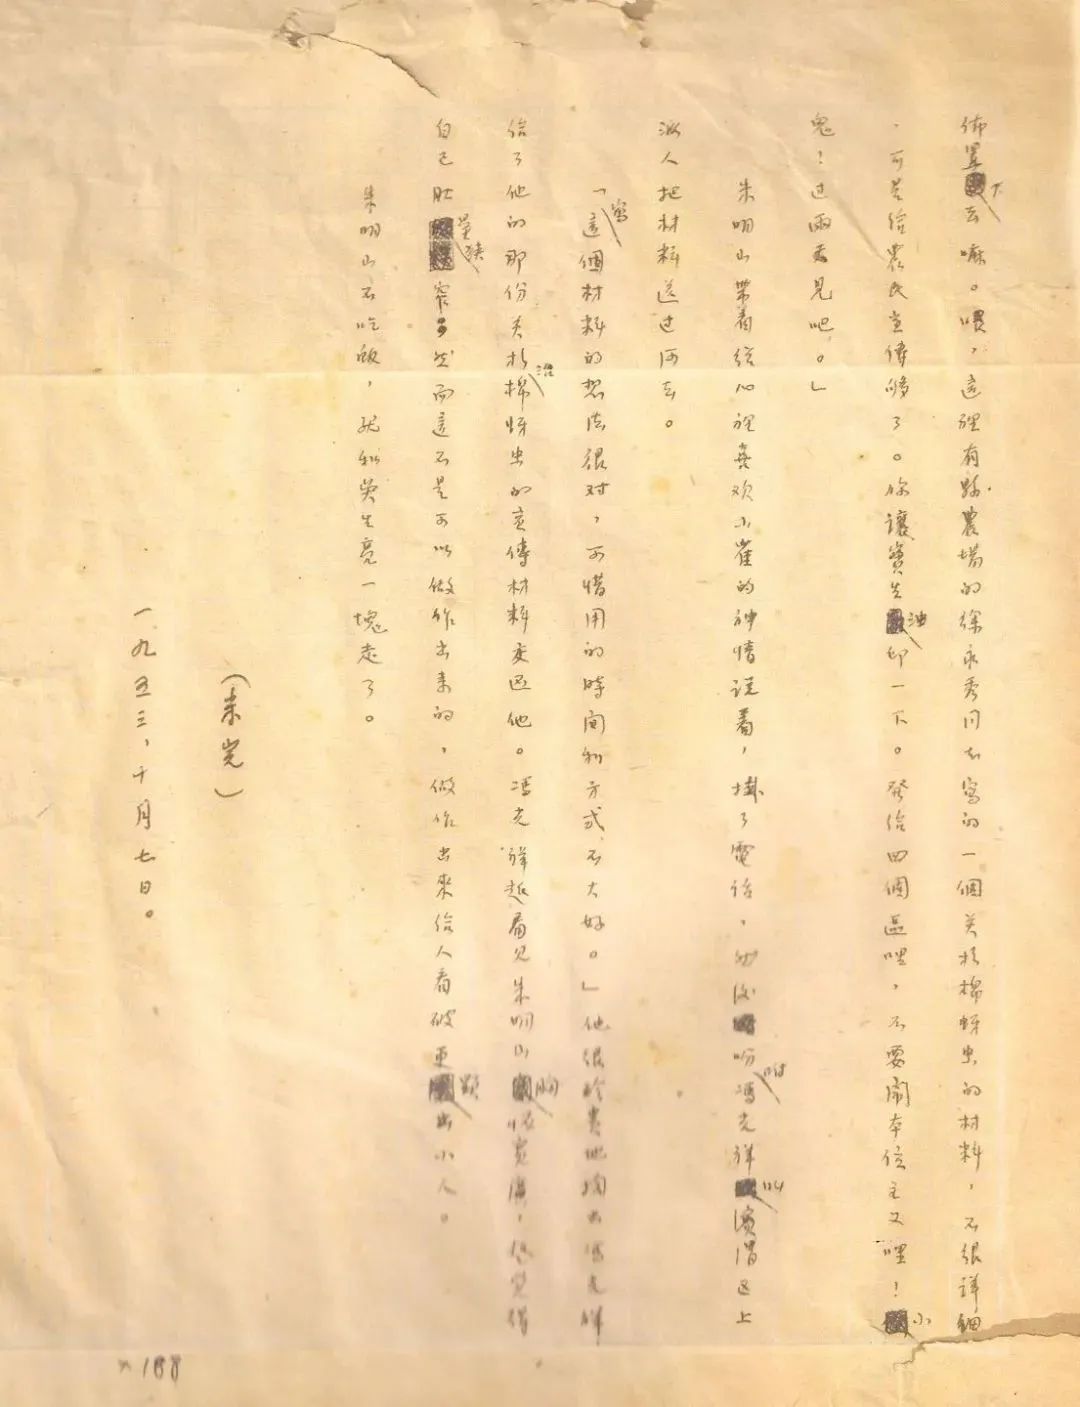 佈置下去嘛。喂，這裡有縣農場的徐永秀同志寫的一個关於棉蚜虫的材料，不很詳細
，可是给農民宣傳够了。你讓寶生油印一下。發给四個區哩，不要鬧本位主义哩！小
鬼！过兩天見吧。」
朱明山带着從心裡喜欢小崔的神情説着，掛了電话，吩咐馮光祥叫濱渭区上
派人把材料送过河去。
「寫這個材料的想法很对，可惜用的時間和方式不大好。」他很珍貴地掏出馮光祥
给了他的那份关於治棉蚜虫的宣傳材料交还他。馮光祥越看见朱明山胸怀宽廣，
自己肚量狹窄；然而這不是可以做作出来的，做作出來给人看破更顯出小人。
朱明山不吃飯，就和吳生亮一塊走了。
（未完）
一九五三，十月七日。
188